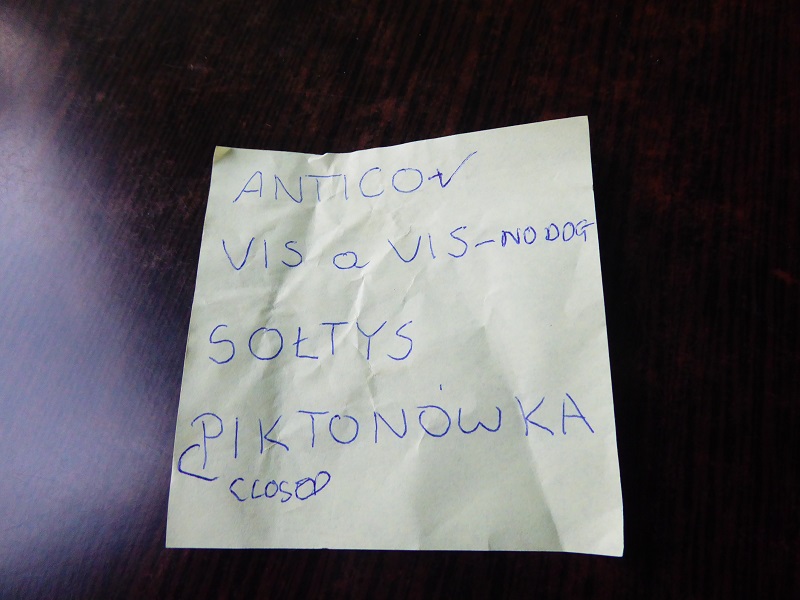 ANTICOV
VIS a VIS - NO DOG
SOŁTYS
PIKTONÓWKA
CLOSED